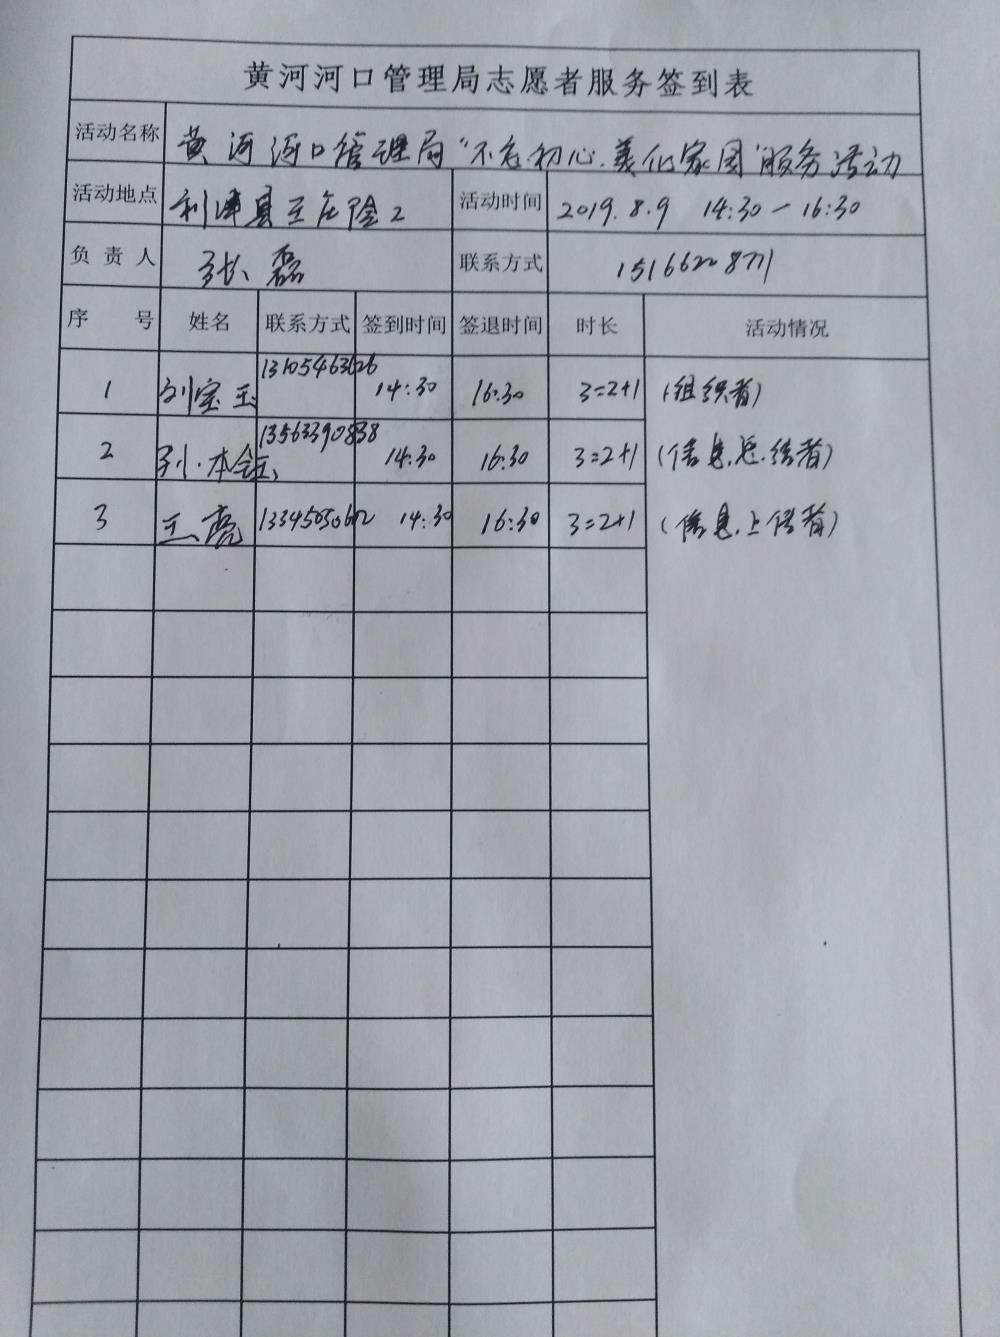 黄河河口管理局志愿者服务签到表
活动名称 黄河河口管理局“不忘初心、美化家园”服务活动
活动地点 利津县王庄险工 活动时间 2019.8.9 14:30—16:30
负责人 张磊 联系方式
序号 姓名 联系方式 签到时间 签退时间 时长 活动情况
1 刘宝玉 13105463626 14:30 16:30 3=2+1 (组织者)
2 孙本 13563390838 14:30 16:30 3=2+1 (信息总结者)
3 王亮 14:30 16:30 3=2+1 (信息上传者)